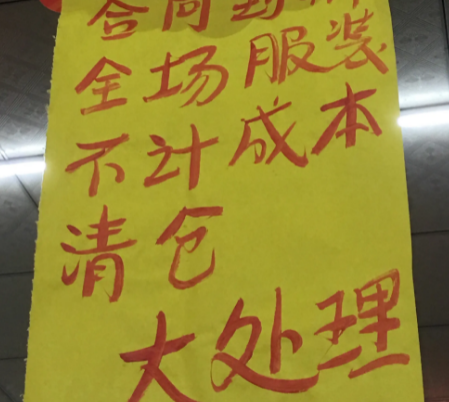 合同到期
全场服装
不计成本
清仓
大处理